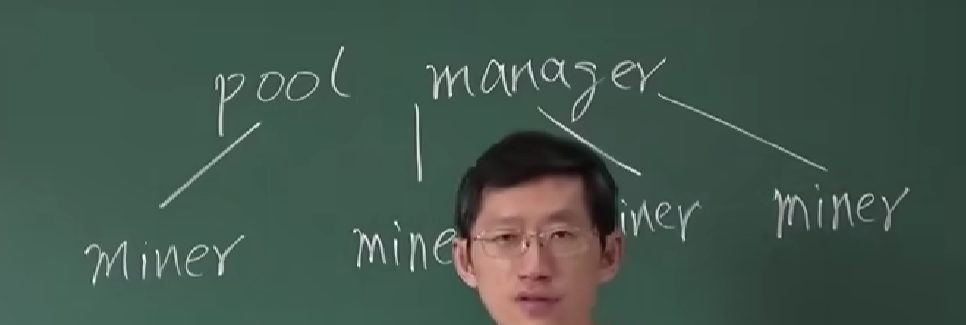 pool manager
miner mine iner miner